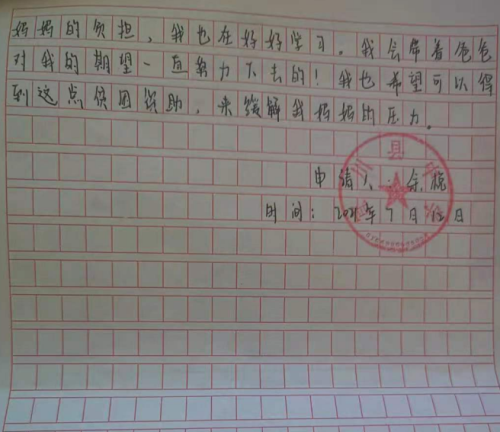 妈妈的负担，我也在好好学习。我会带着爸爸
对我的期望一直努力下去的！我也希望可以得
到这点贫困资助，来缓解我妈妈的压力。
县
申请人：余
时间：2021年7月12日